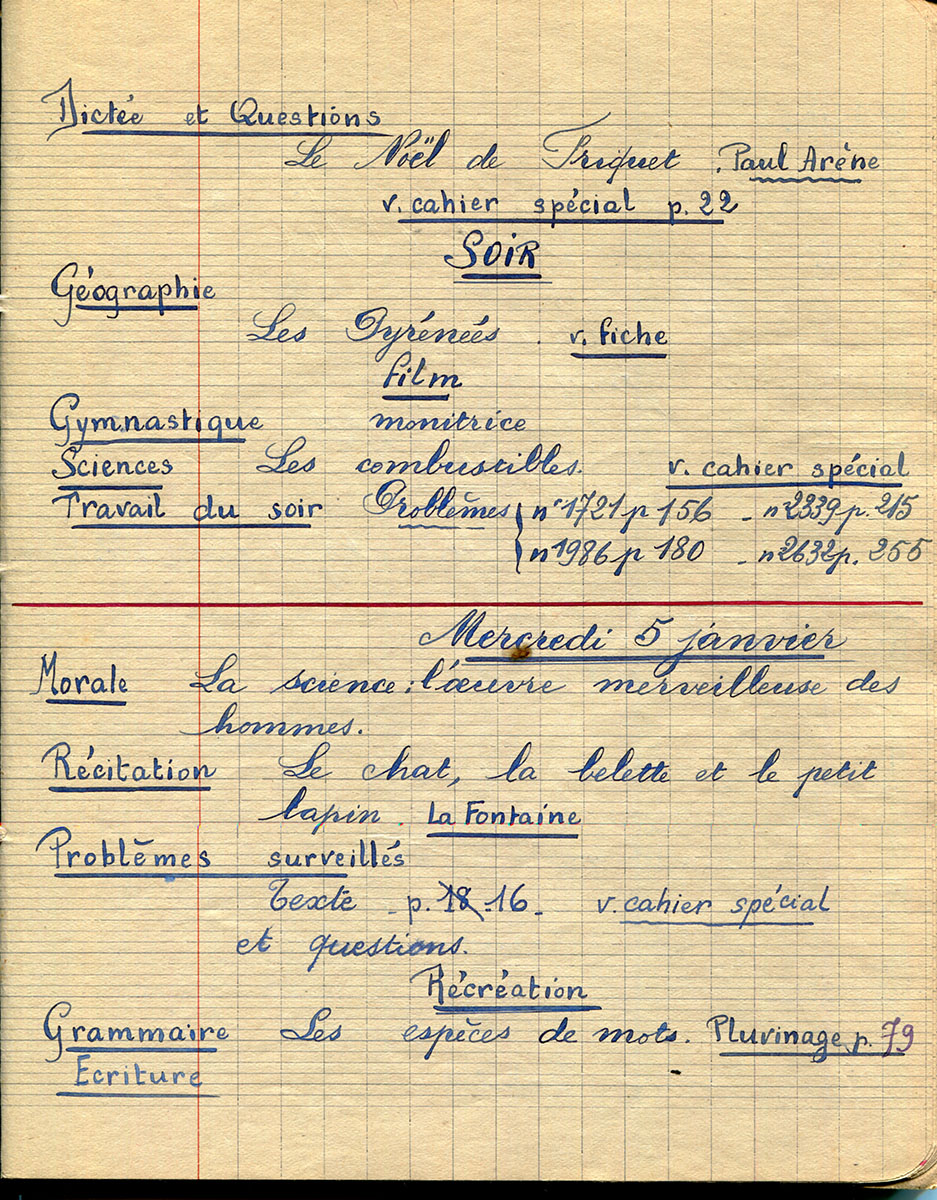 Dictée et Questions
Le Noël de Friquet. Paul Arène
v. cahier spécial p. 22
SOIR
Géographie
Les Pyrénées. v. fiche
film
Gymnastique monitrice
Sciences Les combustibles. v. cahier spécial
Travail du soir Problèmes { n°1721 p 156 - n°2339 p. 215
n°1986 p 180 - n°2632 p. 255
Mercredi 5 janvier
Morale La science : l'œuvre merveilleuse des
hommes.
Récitation Le chat, la belette et le petit
lapin. La Fontaine
Problèmes surveillés
Texte - p. 18 - 16 - v. cahier spécial
et questions.
Récréation
Grammaire Les espèces de mots. Pluvinage p. 79
Ecriture